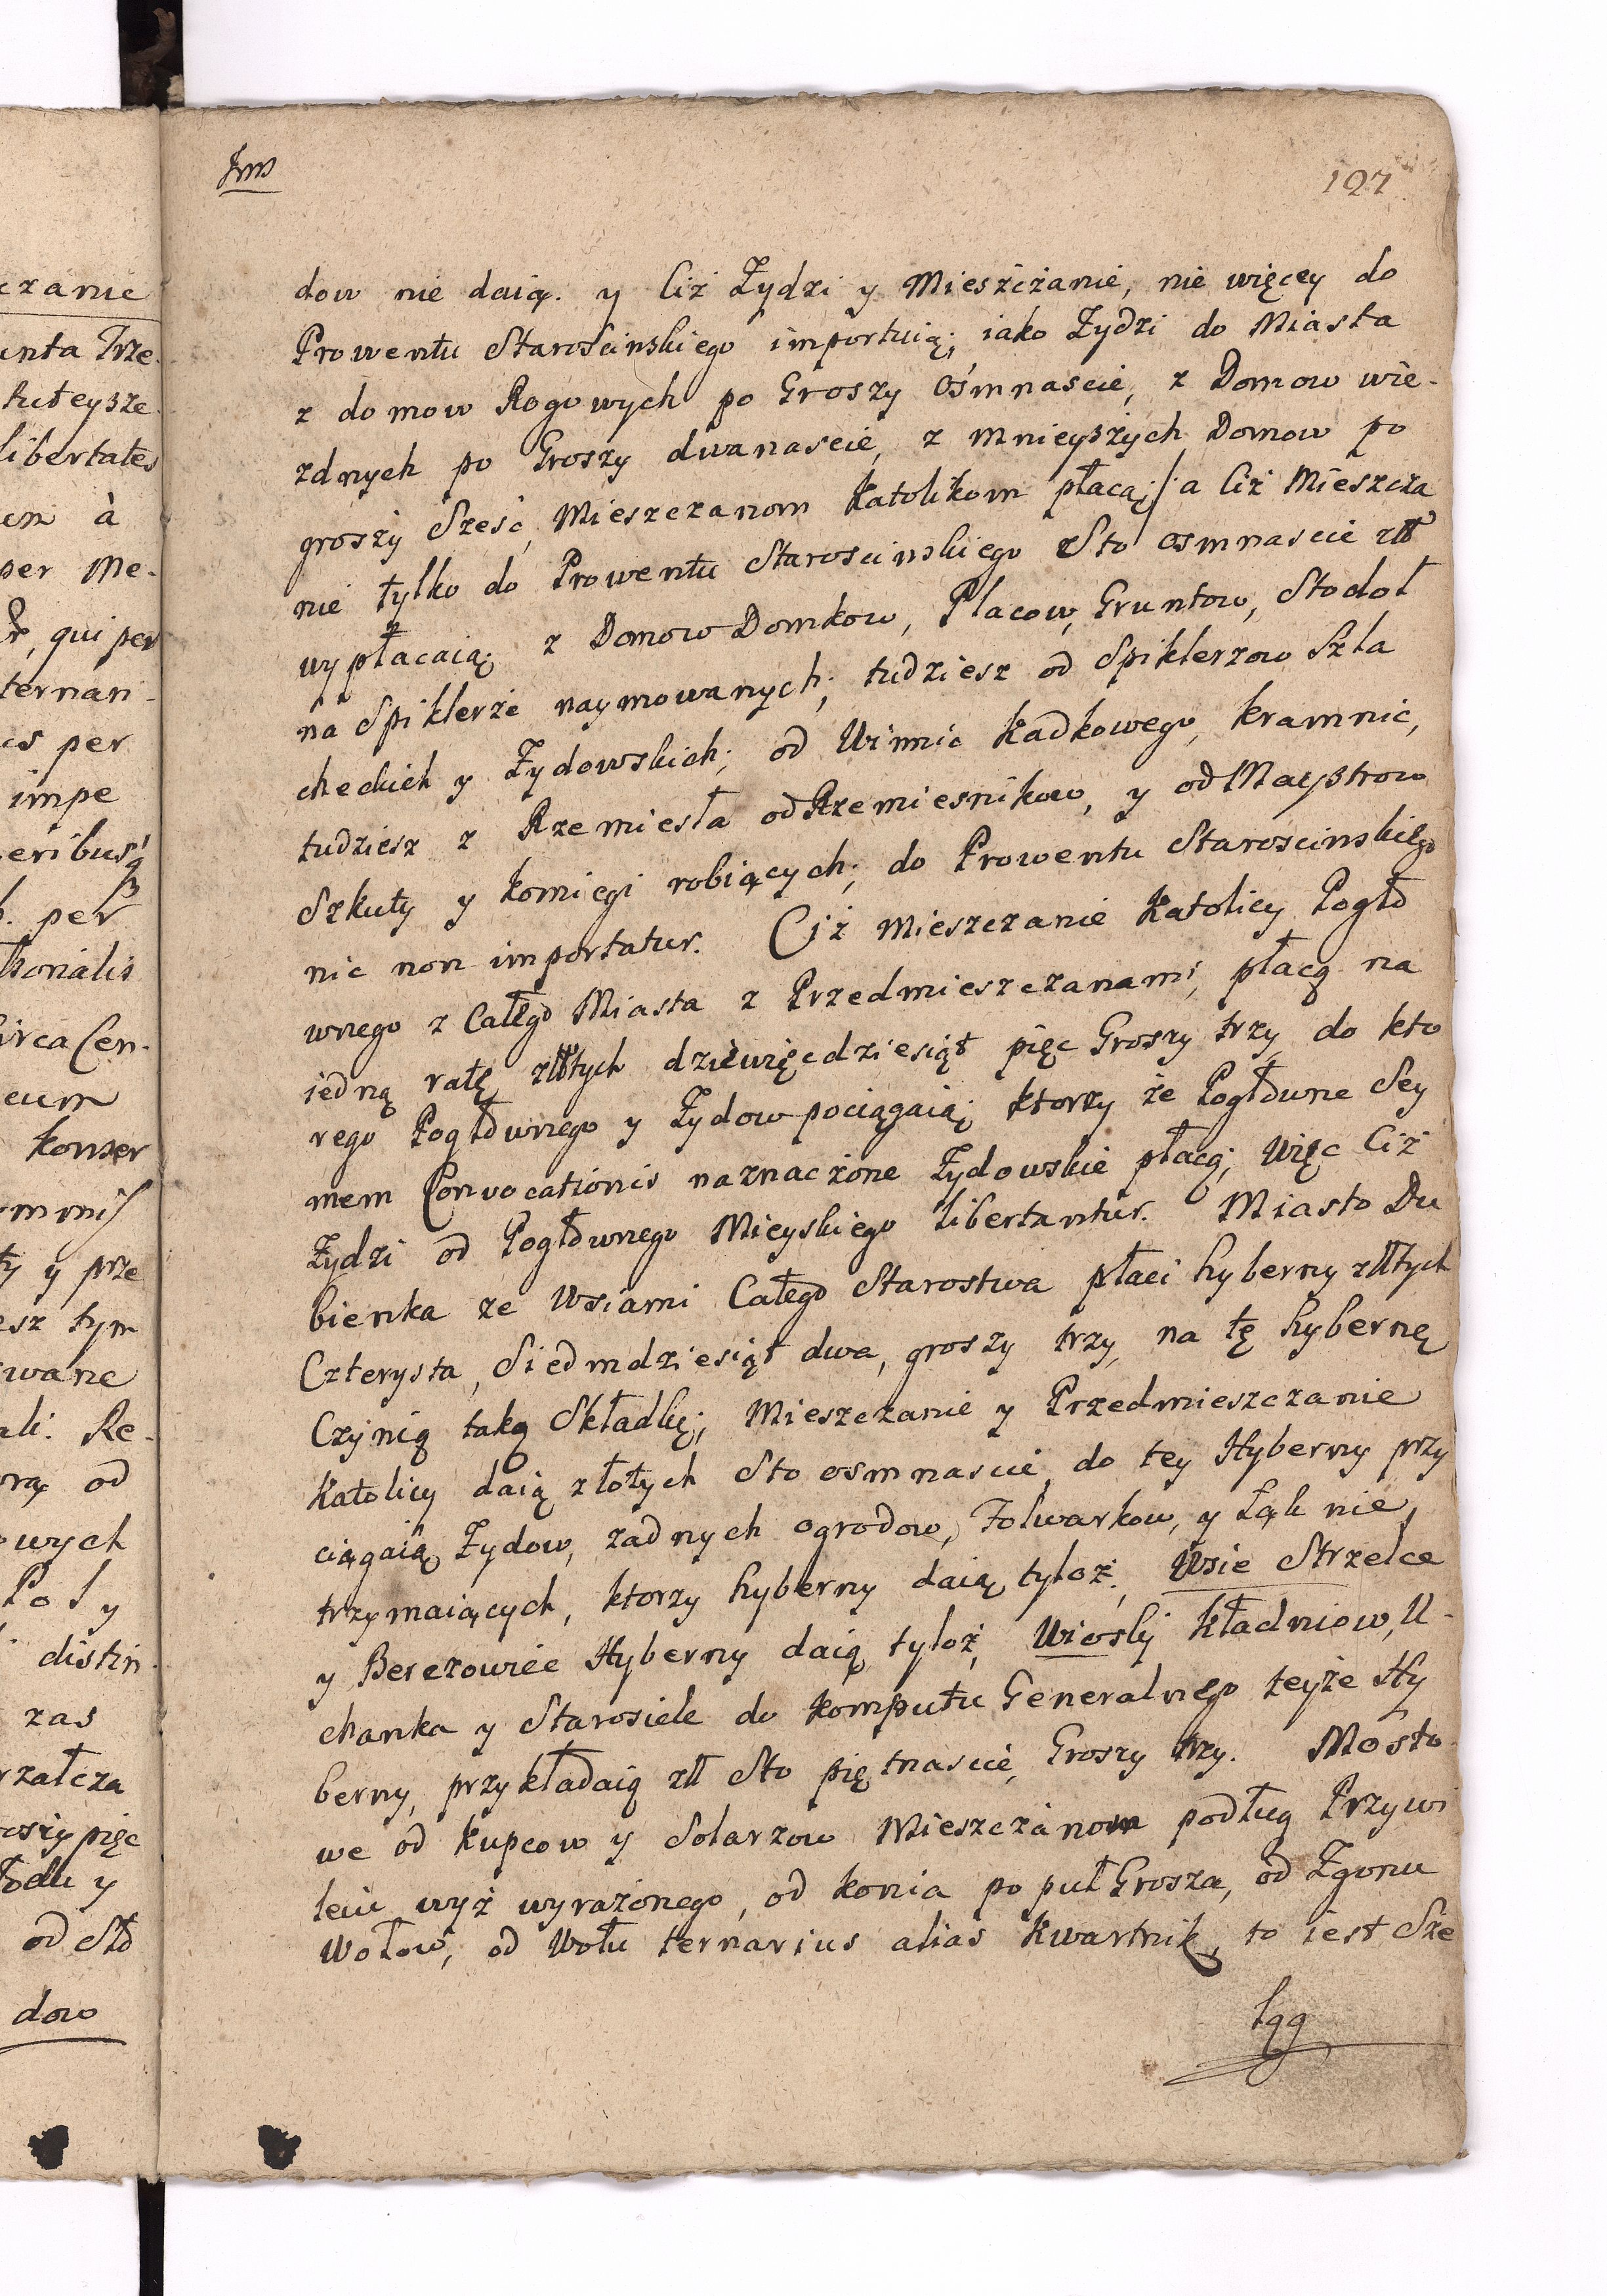 127
dow nie daią. y Ciż Żydzi y Mieszczanie, nie więcey do
Prowentu Starościnskiego importuią; iako Żydzi do Miasta
z domow Rogowych po Groszy Ośmnascie, z Domow wie-
zdnych po Groszy dwanascie, z mnieyszych Domow po
groszy Sześć, Mieszczanom Katolikom płacą; / a Ciż Mieszcza
nie tylko do Prowentu Staroscinskiego Sto osmnascie złł
wypłacaią z Domow Domkow, Placow, Gruntow, Stodoł
na Spiklerze naymowanych; tudziesz od Spiklerzow Szla
checkich y Żydowskich; od Winnic Kadkowego, kramnic,
tudziesz z Rzemiesła od Rzemiesnikow, y od Maystrow
Szkuty y komiegi robiących; do Prowentu Staroscinskiego
nic non importatur. Ciż Mieszczanie Katolicy Pogłó
wnego z Całego Miasta z Przedmieszczanami, płacą na
iedną ratę złłtych dziewięcdziesiąt pięc Groszy trzy, do kto
rego Pogłównego y Żydow pociągaią; ktorzy że Pogłówne Sey
mem Convocationis naznaczone Żydowskie płacą; Więc Ciż
Żydzi od Pogłównego Mieyskiego libertantur. Miasto Du
bienka ze Wsiami Całego Starostwa płaci hyberny złłtych
Czterysta, Siedmdziesiąt dwa, groszy trzy, na tę hybernę
Czynią taką Składkę; Mieszczanie y Przedmieszczanie
Katolicy daią złotych Sto osmnascie, do tey Hyberny przy
ciągaią Żydow, zadnych ogrodow, Folwarkow, y Łąk nie
trzymaiących, ktorzy hyberny daią tyloż; Wsie Strzelce
y Berezowiec Hyberny daią tyloż, Wioski Kładniow, U-
chanka y Starosiele do komputu Generalnego teyże Hy
berny, przykładaią złł Sto piętnascie, Groszy trzy. Mosto
we od kupcow y Solarzow Mieszczanom podług Przywi
leiu wyż wyrażonego, od konia po puł Grosza, od Zgonu
Wołow, od Wołu ternarius alias Kwartnik, to iest Sze
lgg